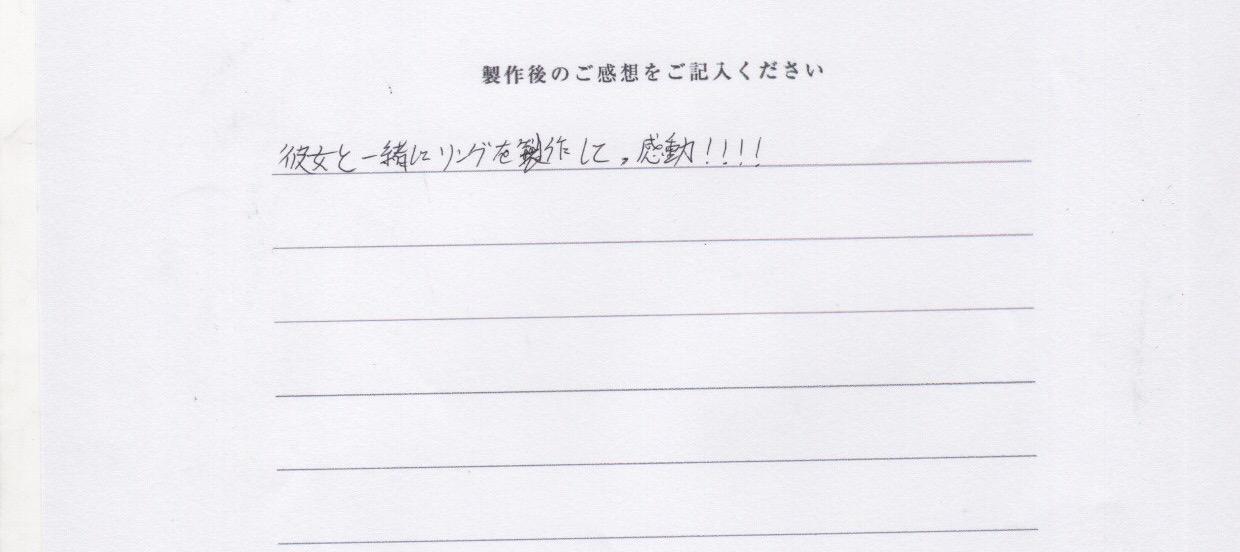 製作後のご感想をご記入ください
彼女と一緒にリングを製作して,感動!!!!